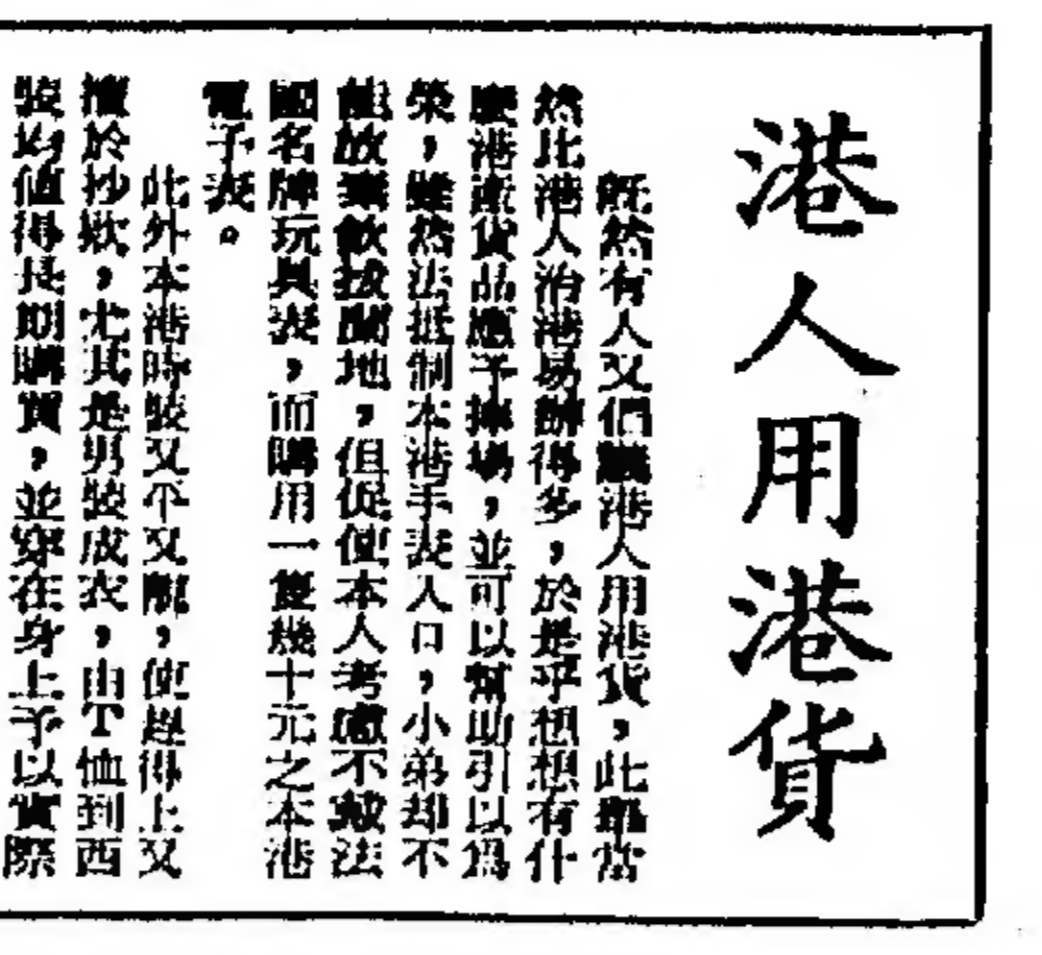 港人用港貨
既然有人又們議港人用港貨,此舉當
然比港人治港易辦得多,於是乎想想有什
麼港產貨品應予捧場,並可以幫助引以爲
榮,雖然法抵制本港手表入口,小弟却不
能放棄歡拔蘭地,但促使本人考慮不戴法
國名牌玩具表,而購用一隻幾十元之本港
電子表。
此外本港時裝又平又靚,使趕得上又
擅於抄欵,尤其是男裝成衣,由T恤到西
裝均値得長期購買,並穿在身上予以實際